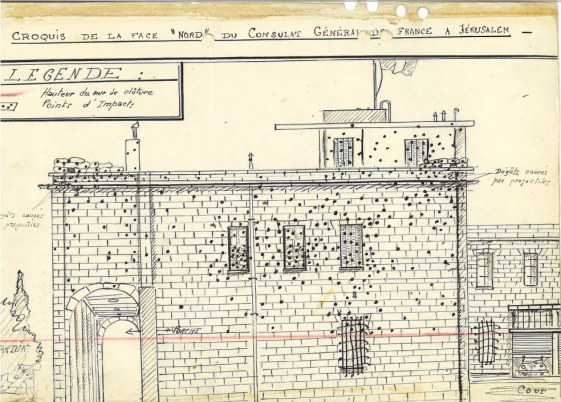 CROQUIS DE LA FACE "NORD" DU CONSULAT GÉNÉRAL DE FRANCE A JÉRUSALEM —
LEGENDE :
Hauteur du mur de clôture
Points d'Impacts
Dégâts causés
par projectiles
causés
projectiles
PORCHE
COUR